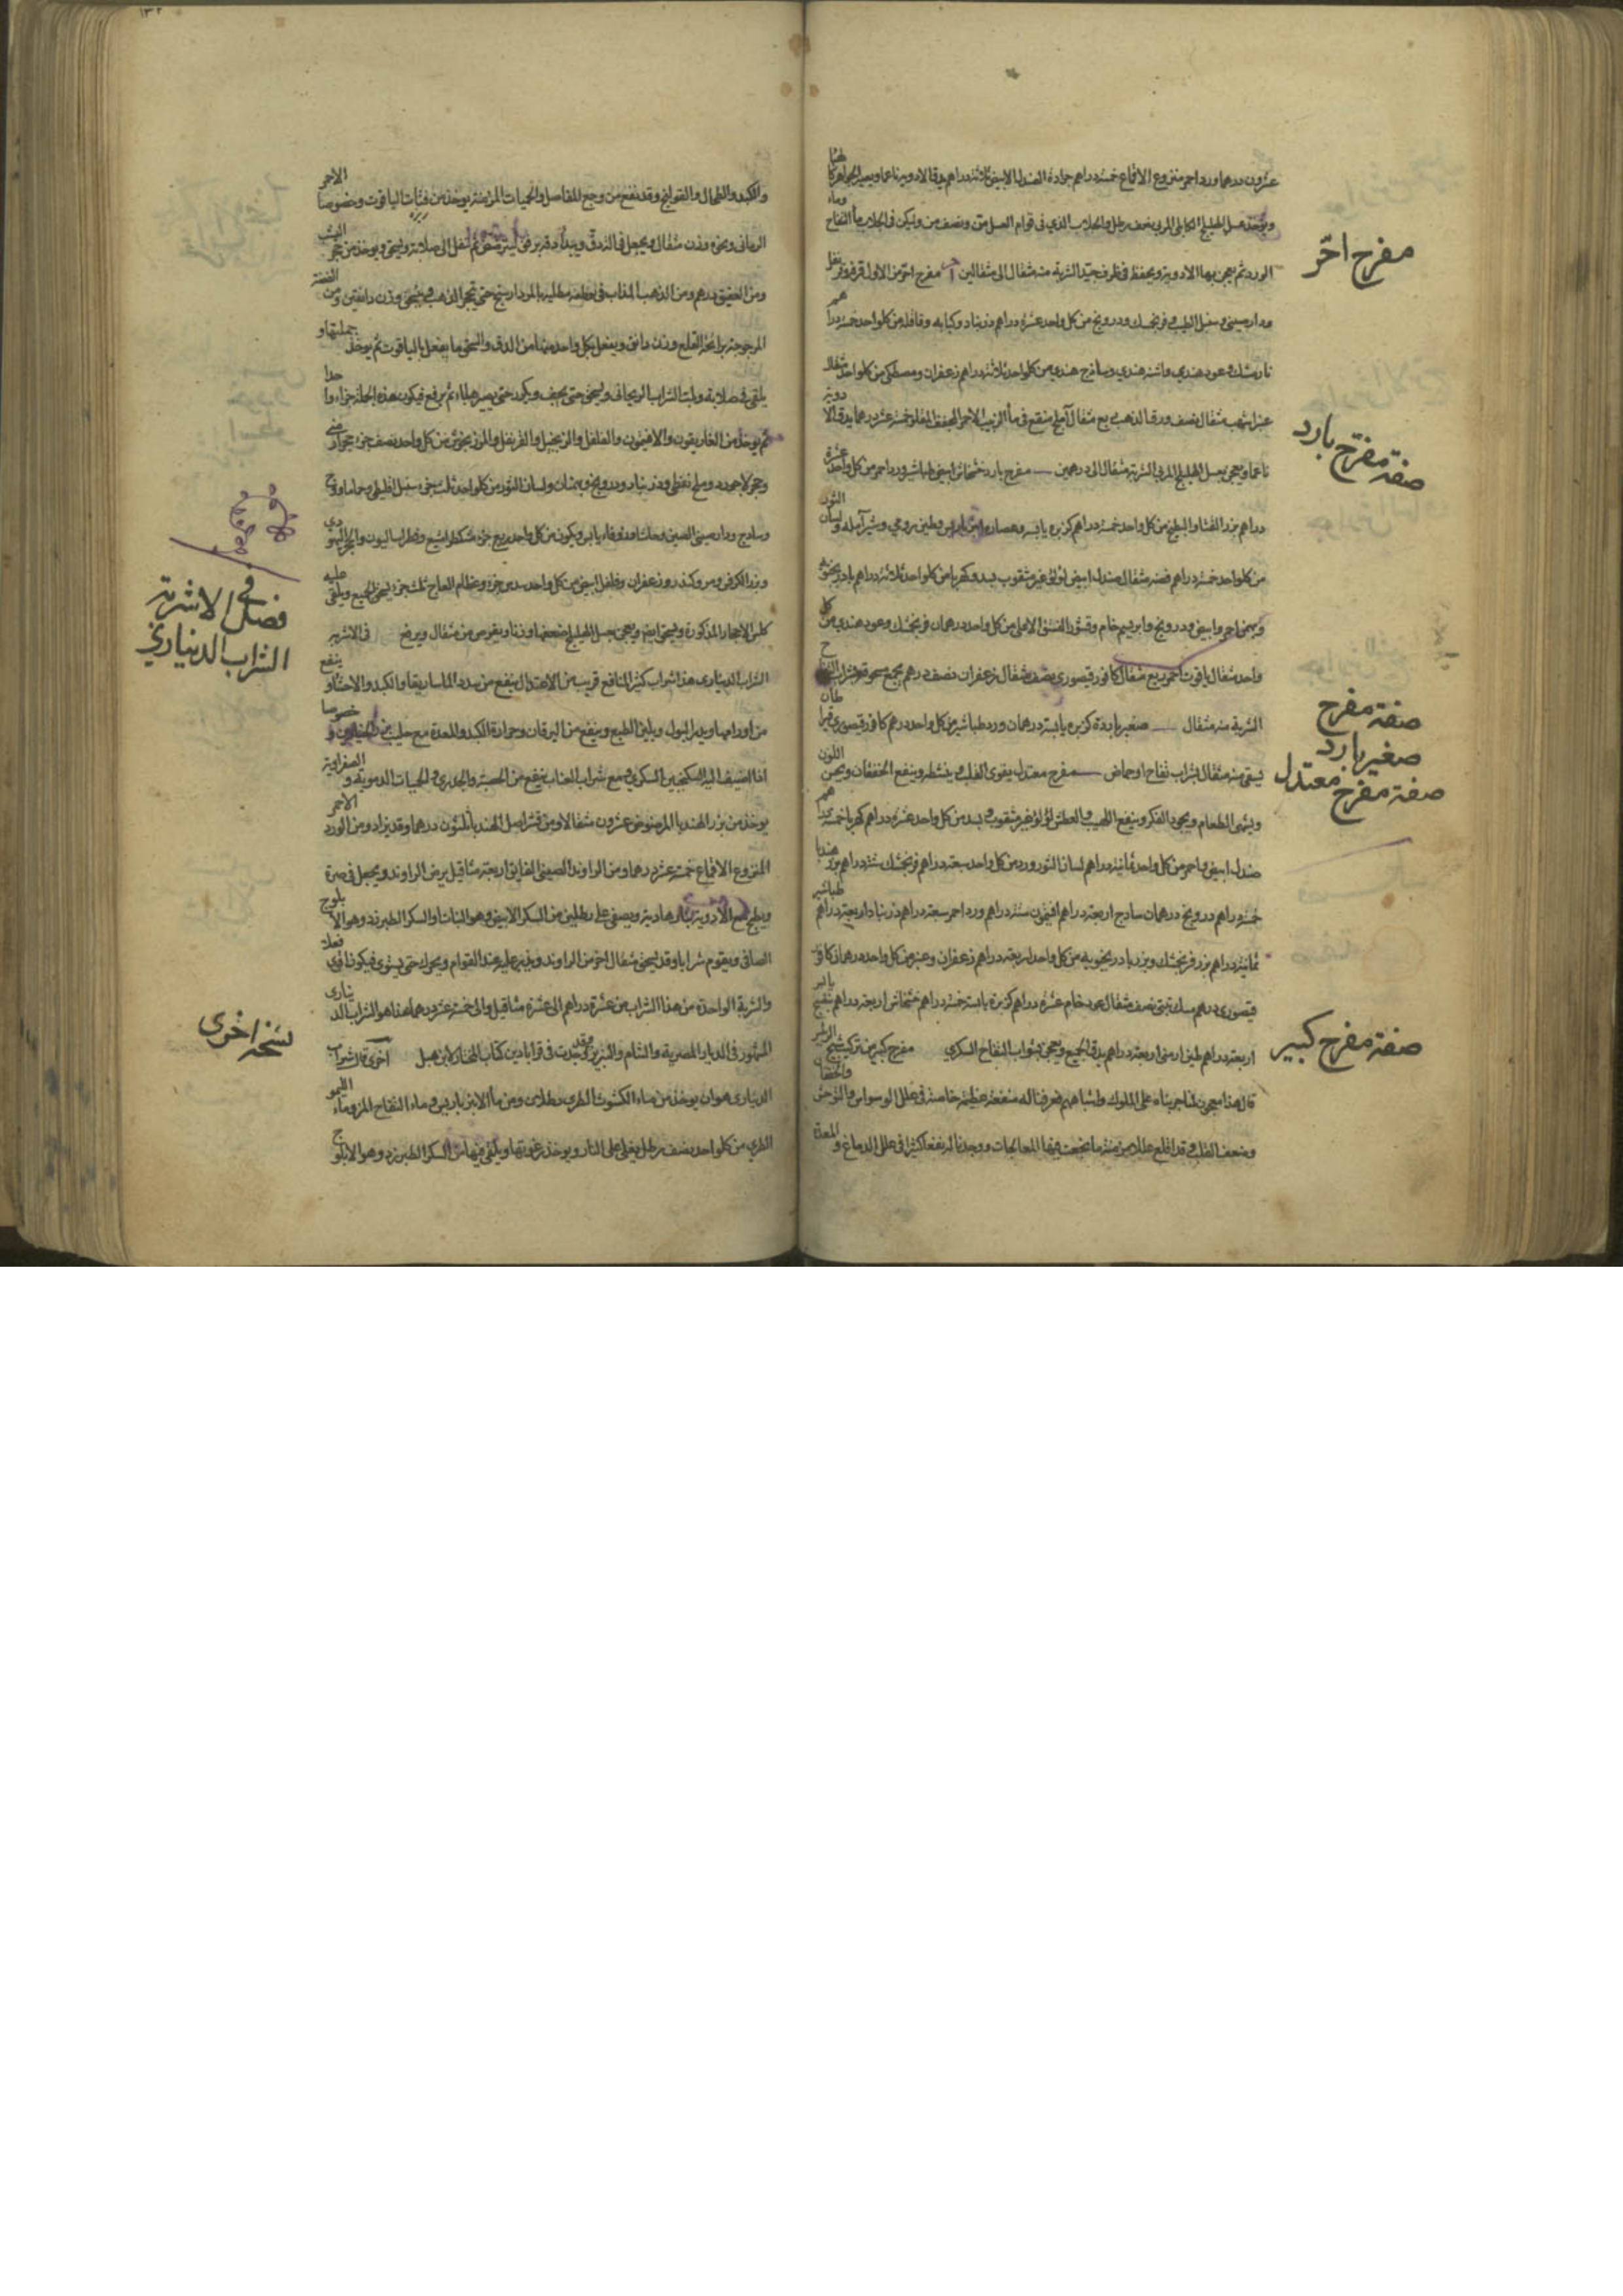 عشرون درهما ورد احمر منزوع الاقماع خمسة دراهم جرادة الصندل الابيض ثلاثة دراهم يدق الادوية ناعما ويصير الجواهر كا لهبا
ويؤخذ عسل الهليلج الكابلى المربى نصف رطل والجلاب الذي فى قوام العسل من ونصف من وليكن فى الجلاب ماء التفاح وماء
الورد ثم يعجن بها الادوية ويحفظ فى ظرف جيد الشربة منه مثقال الى مثقالين مفرح احر من الاول قرفة قرنفل
مفرح احرّ
ودارصينى وسنبل الطيب وفرنجمشك ودرونج من كل واحد عشرة دراهم زرنباد وكبابه وقاقله من كلواحد خمسة دراهم
نارمشك وعود هندي واشنه هندي وساذج هندي من كلواحد ثلاثة دراهم زعفران ومصطكى من كلواحد مثقال
عنبر اشهب مثقال ونصف ورق الذهب ربع مثقال آملج منقع فى ماء الزبيب الاحمر المجفف المقلو خمسة عشر درهما يدق الا دوية
صفة مفرح بارد
ناعما ويعجن بعسل الهليلج المربى الشربة مثقال الى درهمين مفرح بارد خشخاش ابيض طباشير ورد احمر من كل واحد عشرة
دراهم بزر القثاء والبطيخ من كل واحد خمسة دراهم كزبره يابسه وعصارة امبر باريس وطين رومي وشير آمله ولسان الثور
من كلواحد خمسة دراهم فضه مثقال صندل ابيض لؤلؤ غير مثقوب بسد وكهربا من كلواحد ثلاثة دراهم بادرنجبويه
وبهمن احمر وابيض ودرونج وابريسم خام وقشور الفستق الاعلى من كل واحد درهمان فرنجمشك وعود هندي من كل
واحد مثقال ياقوت احمر ربع مثقال كافور قيصورى نصف مثقال زعفران نصف درهم يجمع مسحوقه بشراب التفاح
صفة مفرح
صغير بارد
الشربة منه مثقال صغير بارد كزبره يابسة درهمان ورد طباشير من كل واحد درهم كافور قيصورى قيراطان
يسقى منه مثقال بشراب تفاح او حماض مفرح معتدل يقوى القلب وينشطه وينفع الخفقان ويحسن اللون
صفة مفرح معتدل
ويشهى الطعام ويجود الفكر وينفع اللهيب والعطش لؤلؤ غير مثقوب وبسد من كل واحد عشرة دراهم كهربا خمسة دراهم
صندل ابيض واحمر من كل واحد ثمانية دراهم لسان الثور ورد من كل واحد سبعة دراهم فرنجمشك ستة دراهم بزر هندبا
خمسة دراهم درونج درهمان ساذج اربعة دراهم افتيمون ستة دراهم ورد احمر سبعة دراهم زرنباد اربعة دراهم طباشير
ثمانية دراهم بزر فرنجمشك وبزر بادرنجبويه من كل واحد اربعة دراهم زعفران وعنبر من كل واحد درهمان كافور
قيصورى درهم مسك تبتى نصف مثقال عود خام عشرة دراهم كزبرة يابسة خمسة دراهم خشخاش اربعة دراهم بنفسج
صفة مفرح كبير
اربعة دراهم طين ارمنى اربعة دراهم يدق الجميع ويعجن بشراب التفاح السكرى مفرح كبير من تركيب شيخ
قال هذا معجون لنا جربناه على الملوك واشباههم فعرفنا له منفعة عظيمة خاصة فى علل الوسواس والتوحش والخفقان
وضعف القلب وقد اقلع عللا مزمنة ما نجعت فيها المعالجات ووجدنا له نفعا كثيرا فى علل الدماغ والمعدة
١٣٢
والكبد والطحال والقولنج وقد نفع من وجع المفاصل والحميات المزمنة يوخذ من فتات الياقوت وخصوصا الاحمر
الرمانى ونحوه وزن مثقال ويجعل فى الهاون ويبدأ دقه برفق ثم ينقل الى صلاية ويسحق ويوخذ من حجر اليشب
ومن العقيق درهم ومن الذهب المذاب
المزوجة برائحة القلع وزن دانق ويفعل بكل واحد منها من الدق والسحق ما يفعل بالياقوت ثم يوخذ جملتها و
يلقى فى صلاية وعليه الشراب الريحانى ويسحق حتى يجف ويكرر حتى يصير هباء ثم يرفع فيكون هذه الجملة جزء واحدا
ثم يوخذ من الغاريقون والافتيمون والفلفل والزنجبيل والقرنفل والمرزنجوش من كل واحد نصف جزء حجر ارمنى
وحجر لاجورد وملح نفطى وزرنباد ودرونج وبهمنان ولسان الثور من كلواحد ثلث جزء سنبل اقليطى وحماما ووج
وساذج ودارصينى الصين
وبزر الكرفس ومر وكندر وزعفران وفلفل ابيض من كل واحد سدس جزء وعظام العاج ثلث جزء يسحق الجميع ويلقى عليه
كلس الاحجار المذكورة ويسحق ايضا ويعجن بعسل الهليلج ضعفها وزنا ويقرص من مثقال ويرفع فى الاشربه
فصل فى الاشربة
الشراب الديناري
الشراب الدينارى هذا شراب كثير المنافع قريب من الاعتدال ينفع من سدد الماساريقا والكبد والاحشاء وينفع
من اورامها ويدر البول ويلين الطبع وينفع من اليرقان وحرارة الكبد والمعدة مع حليب بزر الخيارين خصوصا
اذا اضيف اليه السكنجبين السكرى ومع شراب العناب ينفع من الحصبة والجدرى والحميات الدمويه والصفراوية
يوخذ من بزر الهندبا المرضوض عشرون مثقالا ومن قشر اصل الهندبا ثلثون درهما وقد يزاد ومن الورد الاحمر
المنزوع الاقماع خمسة عشر درهما ومن الراوند الصينى الفايق اربعة مثاقيل يرض الراوند ويجعل فى صرة
ويطبخ مع الادوية بنار هادية ويصفى على رطلين من السكر الابيض وهو النبات او السكر الطبرزد وهو الابلوج
الصافى ويقوم شرابا وقد يسحق مثقال اخر من الراوند ويذر عليه عند القوام ويحرك حتى يستوى فيكون اقوى فعلا
والشربة الواحدة من هذا الشراب من عشرة دراهم الى عشرة مثاقيل والى خمسة عشر درهما هذا هو الشراب الدينارى
نسخة اخرى
المشهور فى الديار المصرية والشام والتبريز وقد وجدت فى قراباذين كتاب المختار لابن هبل اخرى قال شراب
الدينارى هو ان يوخذ من ماء الكشوث الطرى رطلان ومن ماء الانبرباريس وماء التفاح المز وماء الليمو
الطرى من كلواحد نصف رطل يغلى على النار ويوخذ رغوتها ويلقى فيها من السكر الطبرزد وهو الابلوج